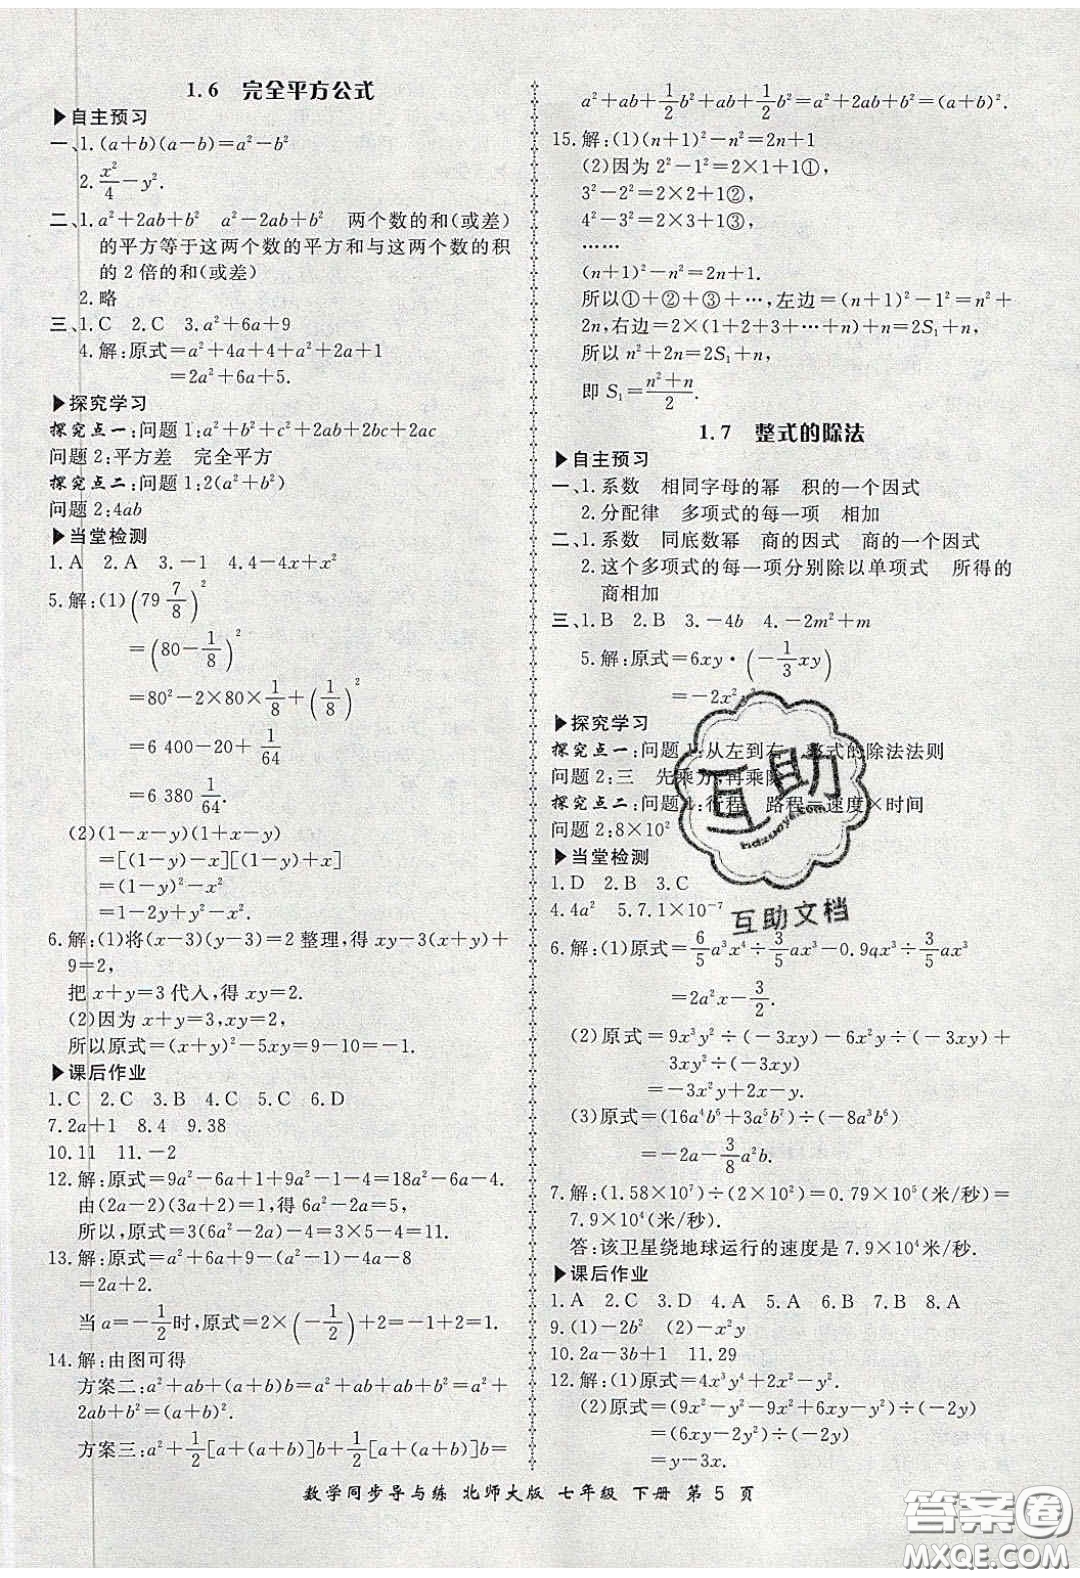 1.6 完全平方公式
▶自主预习
一、1.(a+b)(a-b)=a²-b²
2.x²/4-y².
二、1.a²+2ab+b² a²-2ab+b² 两个数的和(或差)
的平方等于这两个数的平方和与这两个数的积
的2倍的和(或差)
2.略
三、1.C 2.C 3.a²+6a+9
4.解:原式=a²+4a+4+a²+2a+1
=2a²+6a+5.
▶探究学习
探究点一:问题1:a²+b²+c²+2ab+2bc+2ac
问题2:平方差 完全平方
探究点二:问题1:2(a²+b²)
问题2:4ab
▶当堂检测
1.A 2.A 3.-1 4.4-4x+x²
5.解:(1)(79 7/8)²
=(80-1/8)²
=80²-2×80×1/8+(1/8)²
=6 400-20+1/64
=6 380 1/64.
(2)(1-x-y)(1+x-y)
=[(1-y)-x][(1-y)+x]
=(1-y)²-x²
=1-2y+y²-x².
6.解:(1)将(x-3)(y-3)=2整理,得 xy-3(x+y)+
9=2,
把 x+y=3代入,得 xy=2.
(2)因为 x+y=3,xy=2,
所以原式=(x+y)²-5xy=9-10=-1.
▶课后作业
1.C 2.C 3.B 4.C 5.C 6.D
7.2a+1 8.4 9.38
10.11 11.-2
12.解:原式=9a²-6a+1+9a²-1-4=18a²-6a-4.
由(2a-2)(3a+2)=1,得6a²-2a=5,
所以,原式=3(6a²-2a)-4=3×5-4=11.
13.解:原式=a²+6a+9-(a²-1)-4a-8
=2a+2.
当a=-1/2时,原式=2×(-1/2)+2=-1+2=1.
14.解:由图可得
方案二:a²+ab+(a+b)b=a²+ab+ab+b²=a²+
2ab+b²=(a+b)².
方案三:a²+1/2[a+(a+b)]b+1/2[a+(a+b)]b=
a²+ab+1/2b²+ab+1/2b²=a²+2ab+b²=(a+b)².
15.解:(1)(n+1)²-n²=2n+1
(2)因为 2²-1²=2×1+1①,
3²-2²=2×2+1②,
4²-3²=2×3+1③,
……
(n+1)²-n²=2n+1.
所以①+②+③+…,左边=(n+1)²-1²=n²+
2n,右边=2×(1+2+3+…+n)+n=2S₁+n,
所以 n²+2n=2S₁+n,
即 S₁=(n²+n)/2.
1.7 整式的除法
▶自主预习
一、1.系数 相同字母的幂 积的一个因式
2.分配律 多项式的每一项 相加
二、1.系数 同底数幂 商的因式 商的一个因式
2.这个多项式的每一项分别除以单项式 所得的
商相加
三、1.B 2.B 3.-4b 4.-2m²+m
5.解:原式=6xy·(-1/3xy)
=-2x²y².
▶探究学习
探究点一:问题1:从左到右 整式的除法法则
问题2:三 先乘方,再乘除
探究点二:问题1:行程 路程=速度×时间
问题2:8×10²
▶当堂检测
1.D 2.B 3.C
4.4a² 5.7.1×10⁻⁷
6.解:(1)原式=6/5a³x⁴÷3/5ax³-0.9ax³÷3/5ax³
=2a²x-3/2.
(2)原式=9x³y²÷(-3xy)-6x²y÷(-3xy)+
3xy²÷(-3xy)
=-3x²y+2x-y.
(3)原式=(16a⁴b⁶+3a⁵b⁷)÷(-8a³b⁶)
=-2a-3/8a²b.
7.解:(1.58×10⁷)÷(2×10²)=0.79×10⁵(米/秒)=
7.9×10⁴(米/秒).
答:该卫星绕地球运行的速度是7.9×10⁴米/秒.
▶课后作业
1.A 2.C 3.D 4.A 5.A 6.D 7.B 8.A
9.(1)-2b² (2)-x²y
10.2a-3b+1 11.29
12.解:(1)原式=4x³y⁴+2x²-y².
(2)原式=(9x²-y²-9x²+6xy-y²)÷(-2y)
=(6xy-2y²)÷(-2y)
=y-3x.
数学同步导与练 北师大版 七年级 下册 第 5 页
互助
hdzuoye.com
互助文档
答案圈
MXQE.COM